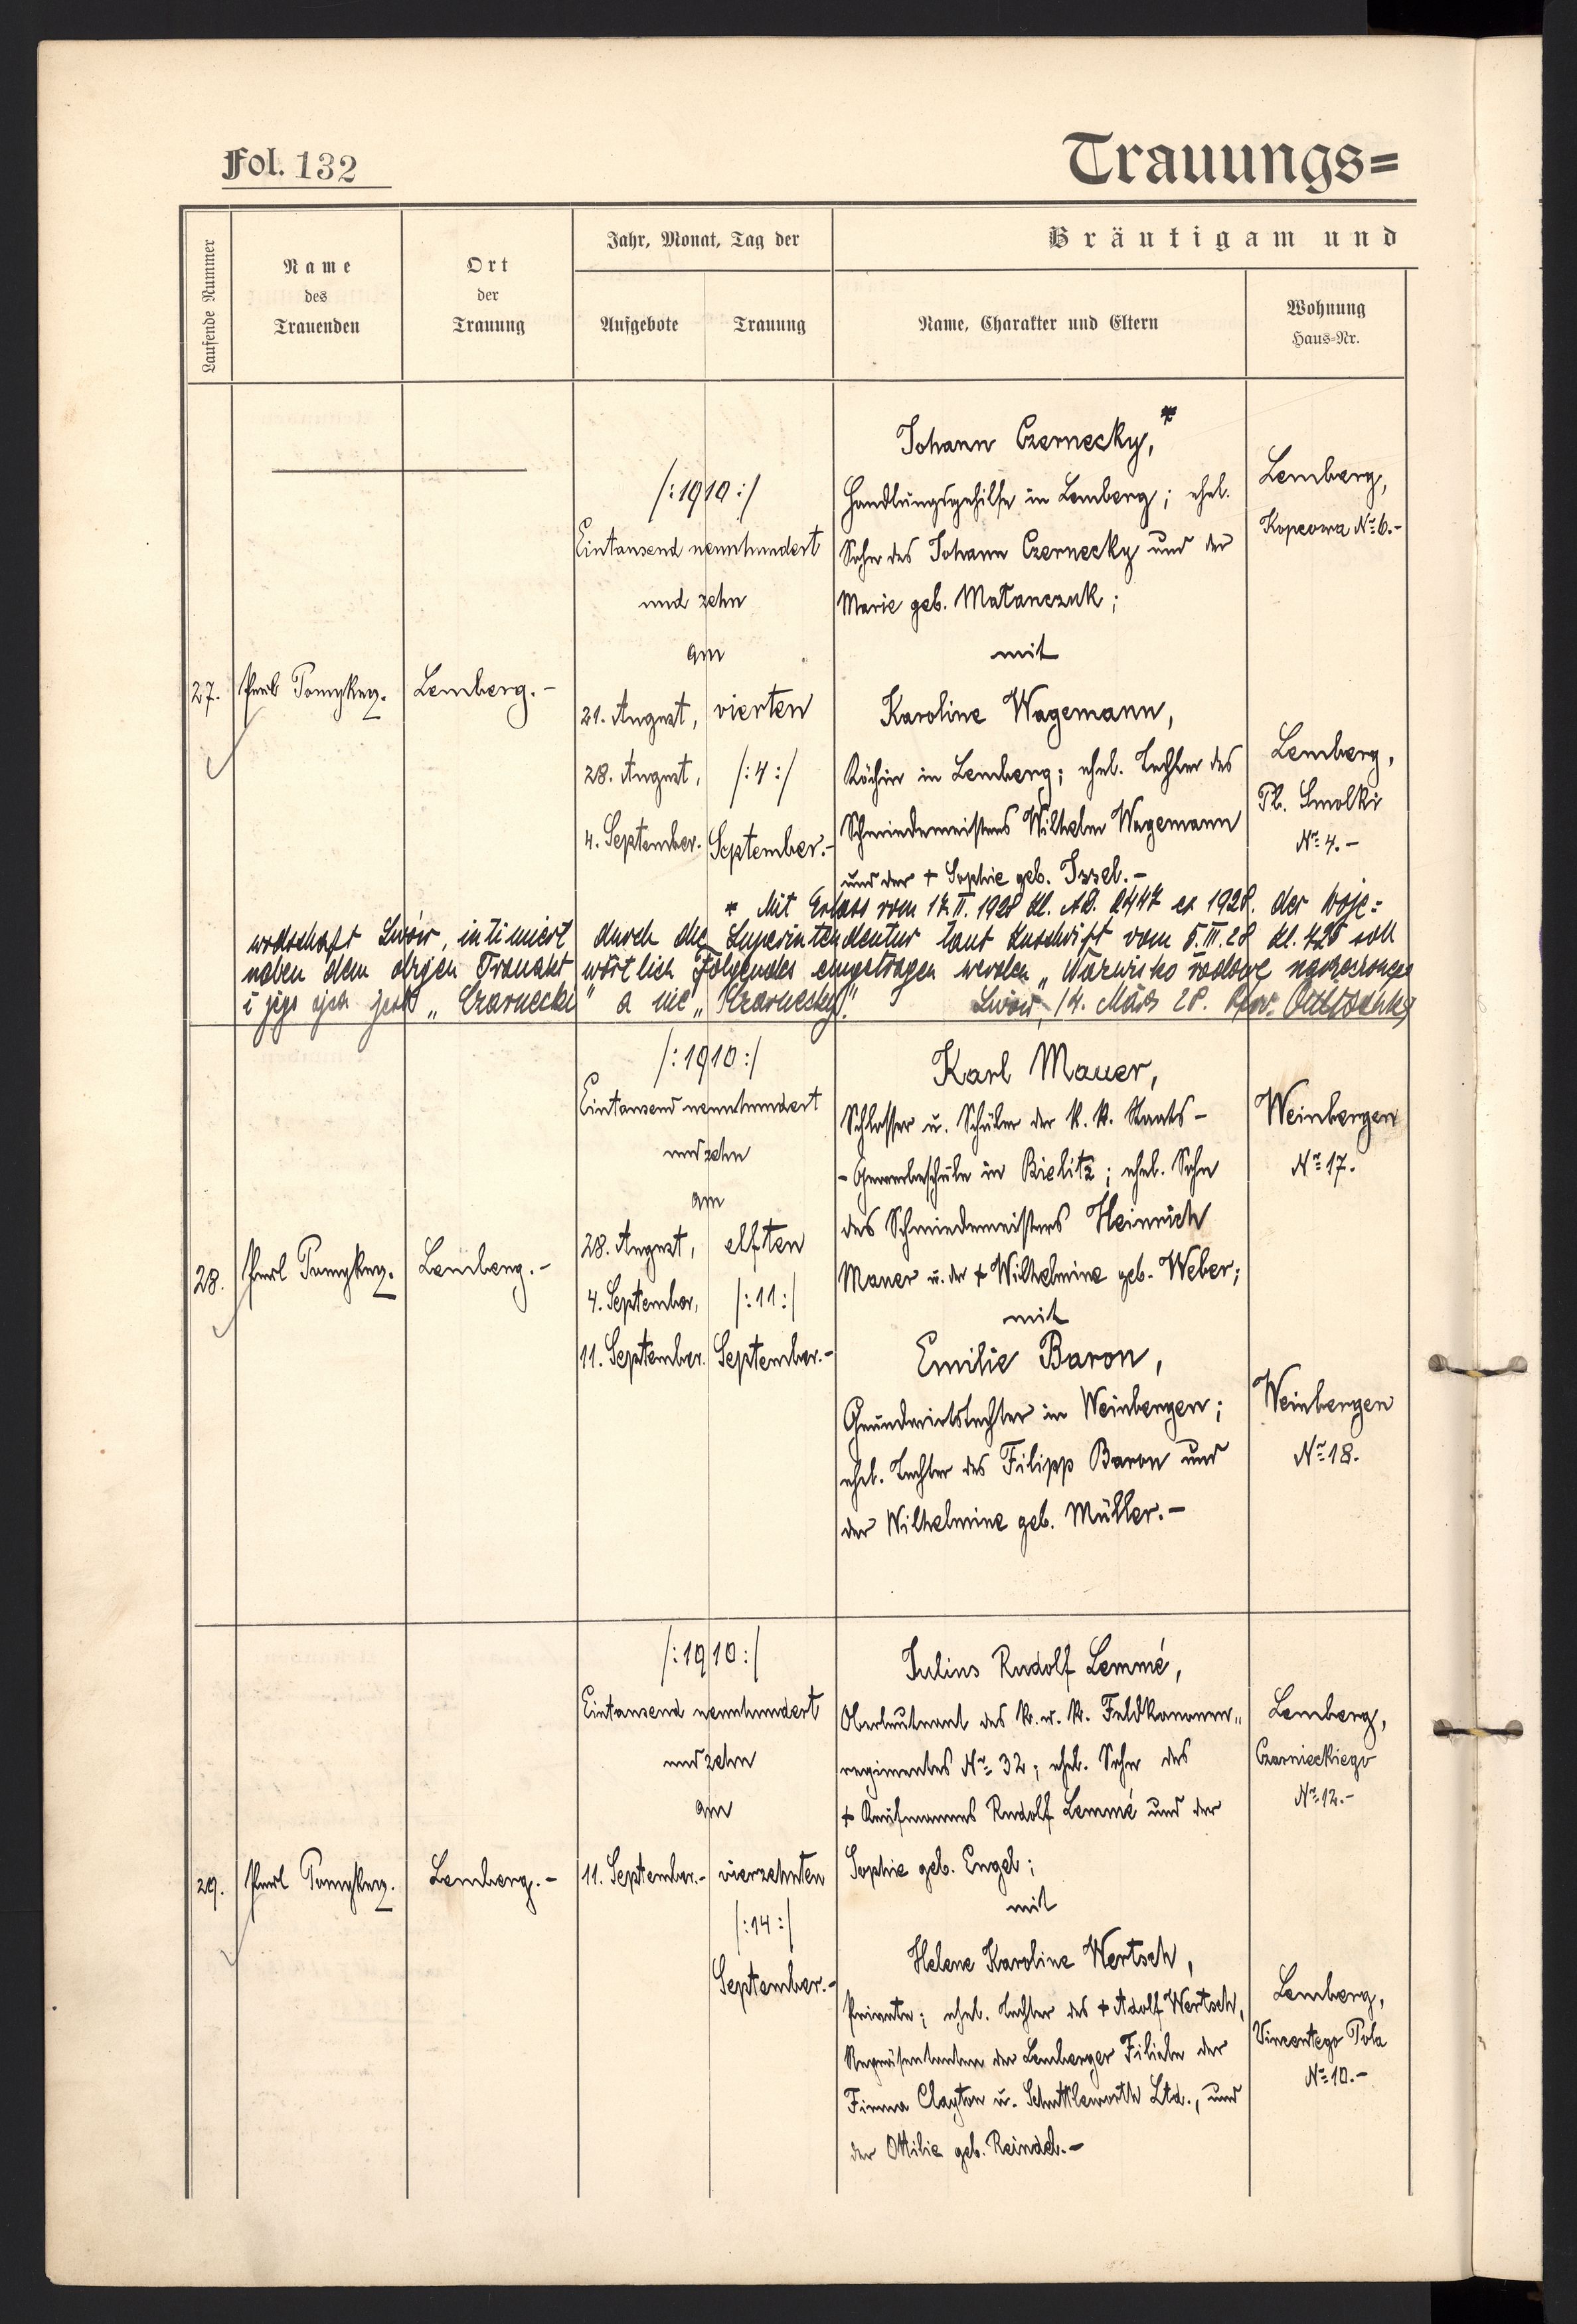 Fol. 132
Trauungs=
Laufende Nummer
Name
des
Trauenden
Ort
der
Trauung
Jahr, Monat, Tag der
Aufgebote
Trauung
Bräutigam und
Name, Charakter und Eltern
Wohnung
Haus=Nr.
27.
Lemberg.-
/:1910:/
Eintausend neunhundert
und zehn
am
21. August,
28. August,
4. September.
vierten
/:4:/
September.-
Johann Czernecky,*
Handlungsgehilfe in Lemberg; ehel.
Sohn des Johann Czernecky und der
Marie geb. Matanczuk;
mit
Karoline Wagemann,
Köchin in Lemberg; ehel. Tochter des
Schmiedemeisters Wilhelm Wagemann
und der + Sophie geb. Issel.-
Lemberg,
Kopcowa No 6.-
Lemberg,
Pl. Smolki
No 4.-
* Mit Erlass vom 17.II.1928 Zl. A.D. 2447 ex 1928. der Woje=
wodschaft Lwów, intimiert durch die Superintendentur laut Zuschrift vom 5.III.28 Zl. 425 soll
neben dem obigen Trauakt wörtlich Folgendes eingetragen werden „Nazwisko rodowe
i jego ojca jest „Czarnecki" a nie „Czarnecky". Lwów, 14. März 28.
28.
Lemberg.-
/:1910:/
Eintausend neunhundert
und zehn
am
28. August,
4. September,
11. September.
elften
/:11:/
September.-
Karl Mauer,
Schlosser u. Schüler der k. k. Staats-
-Gewerbeschule in Bielitz; ehel. Sohn
des Schmiedemeisters Heinrich
Mauer u. der + Wilhelmine geb. Weber;
mit
Emilie Baron,
Grundwirtstochter in Weinbergen;
ehel. Tochter des Filipp Baron und
der Wilhelmine geb. Müller.-
Weinbergen
No 17.
Weinbergen
No 18.
29.
Lemberg.-
/:1910:/
Eintausend neunhundert
und zehn
am
11. September.-
vierzehnten
/:14:/
September.-
Julius Rudolf Lemmé,
Oberleutnant des k. u. k. Feldkanonen„
regimentes No 32; ehel. Sohn des
+ Kaufmannes Rudolf Lemmé und der
Sophie geb. Engel;
mit
Helene Karoline Wertsch,
Private; ehel. Tochter des + Adolf Wertsch,
Repräsentanten der Lemberger Filiale der
Firma Clayton u. Schuttleworth Ltd., und
der Ottilie geb. Reindel.-
Lemberg,
Czarnieckiego
No 12.-
Lemberg,
Vincentego Pola
No 10.-